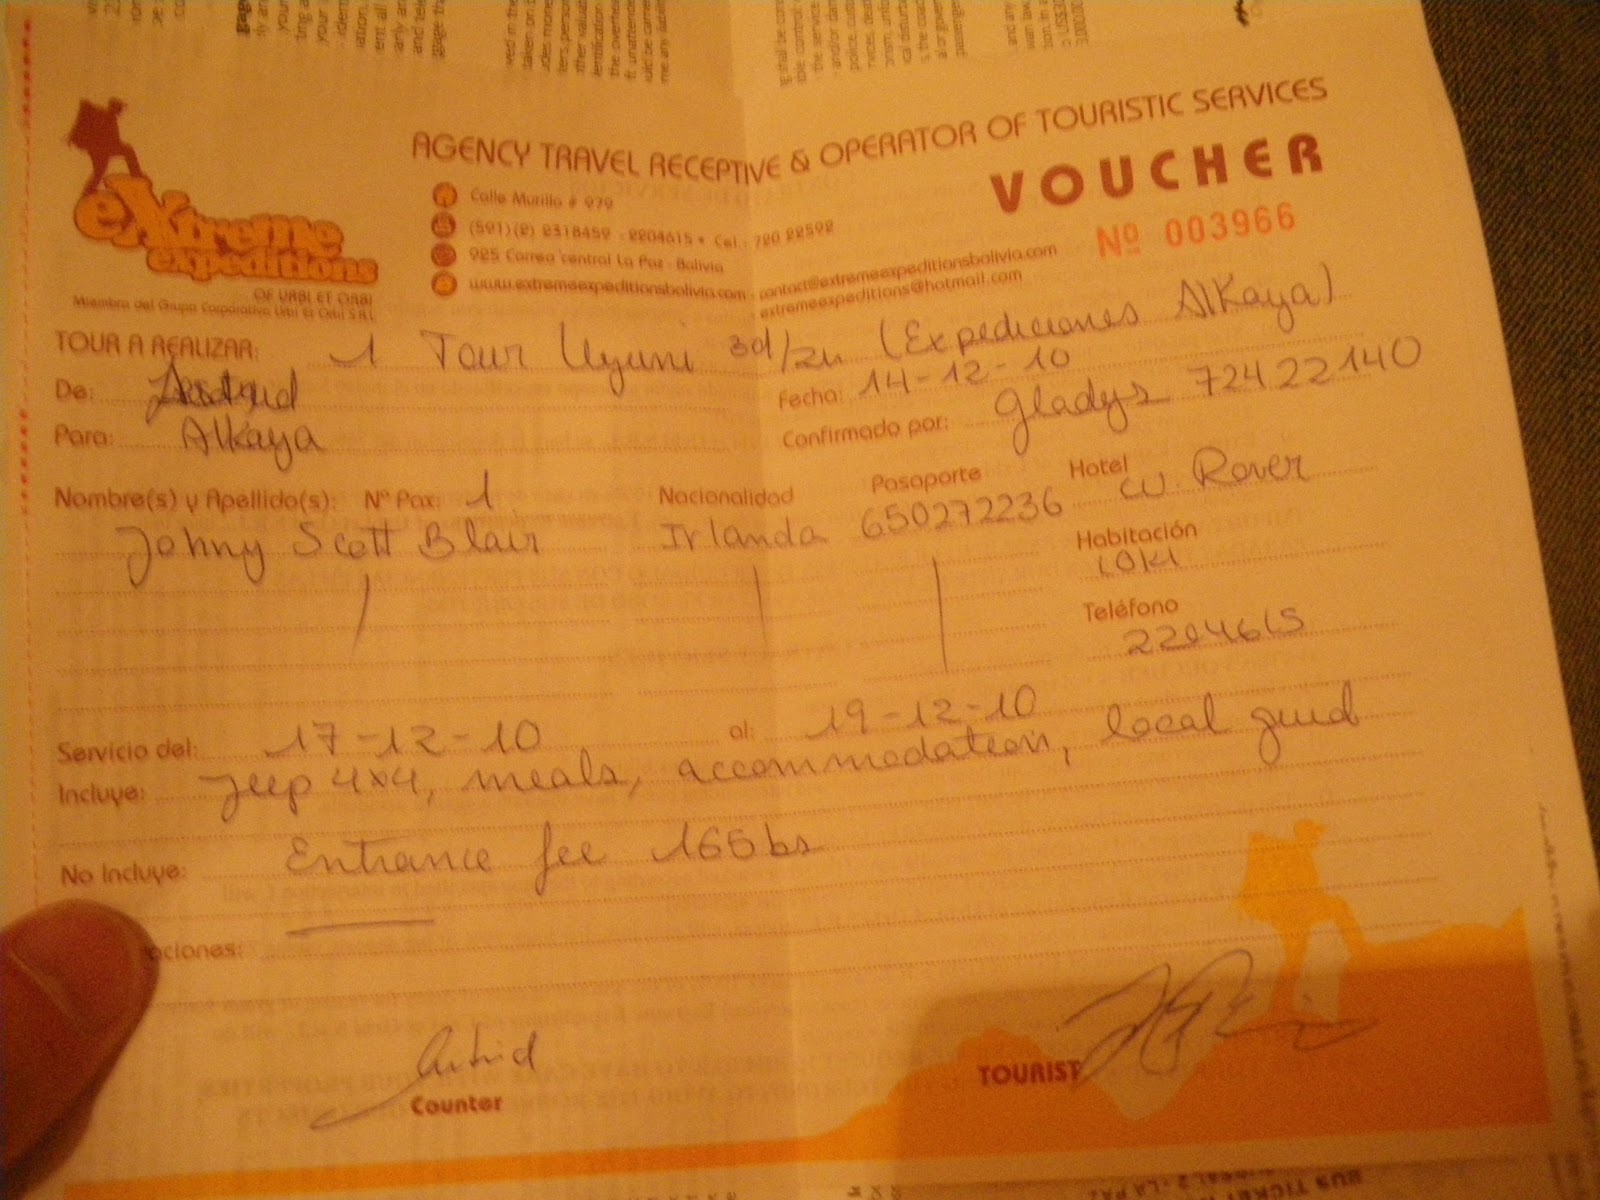 AGENCY TRAVEL RECEPTIVE & OPERATOR OF TOURISTIC SERVICES
VOUCHER
Nº 003966
eXtreme
expeditions
OF URBI ET ORBI
Miembro del Grupo Corporativo Urbi Et Orbi S.R.L
Calle Murillo # 979
(591)(2) 2318459 - 2204615 • Cel.: 720 22592
925 Correo central La Paz - Bolivia
www.extremeexpeditionsbolivia.com - contact@extremeexpeditionsbolivia.com
extremeexpeditions@hotmail.com
TOUR A REALIZAR: 1 Tour Uyuni 3d/2n (Expediciones Alkaya)
De: Fecha: 14-12-10
Para: Alkaya Confirmado por: Gladys 72422140
Nombre(s) y Apellido(s): Nº Pax: 1 Nacionalidad Pasaporte Hotel W. Rover
Johny Scott Blair Irlanda 650272236
Habitación
LOKI
Teléfono
2204615
Servicio del: 17-12-10 al: 19-12-10
Incluye: Jeep 4x4, meals, accommodation, local guid
No Incluye: Entrance fee 165 bs
ciones:
Astrid
Counter
TOURIST